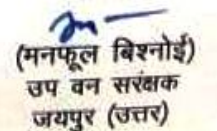 (मनफूल बिश्नोई)
उप वन सरंक्षक
जयपुर (उत्तर)